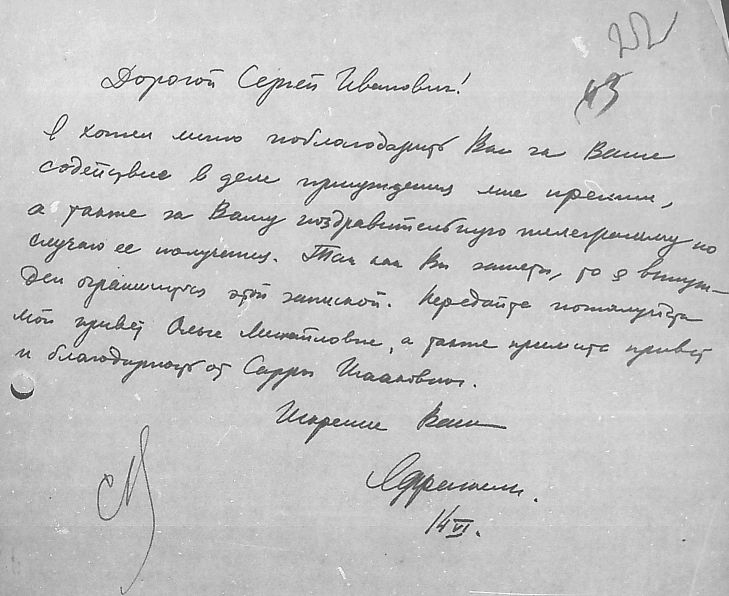 252
43
Дорогой Сергей Иванович!
Я хотел лично поблагодарить Вас за Ваше
содействие в деле присуждения мне премии,
а также за Вашу поздравительную телеграмму по
случаю ее получения. Так как Вы заняты, то я вынуж-
ден ограничиться этой запиской. Передайте пожалуйста
мой привет Ольге Михайловне, а также примите привет
и благодарность от Сарры Исааковны.
Искренне Ваш
14 VI.